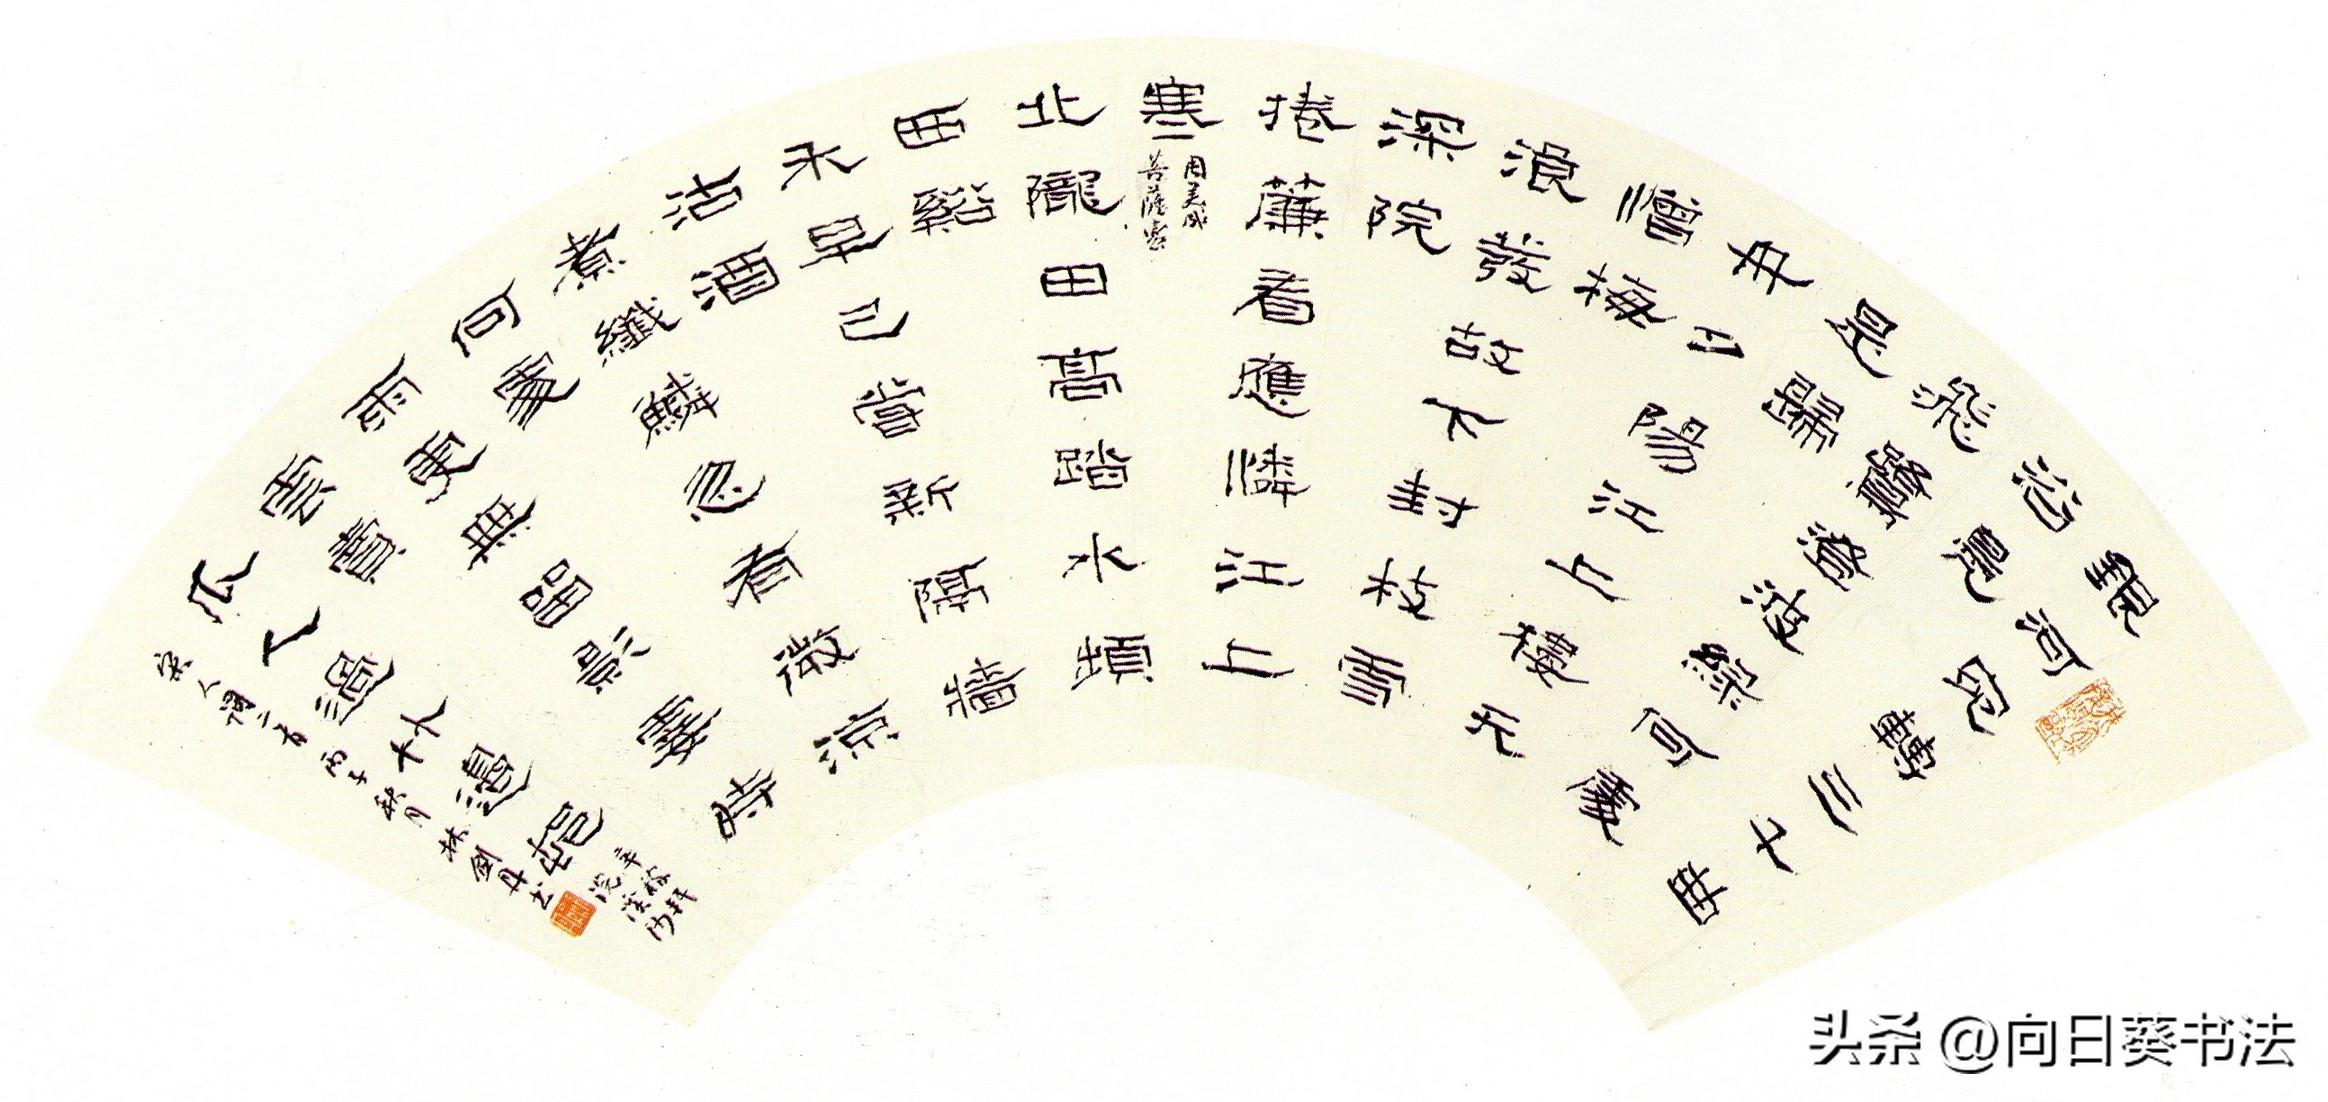 銀河宛轉三千曲
浴鳧
飛鷺澄波綠何處
是歸
舟夕陽江上樓天
憎梅
浪發故下封枝雪
深院
捲簾看應憐江上
寒
周美成
菩薩蠻
北隴田高踏水頻
西谿
禾早已嘗新隔牆
沽酒
煮纖鱗忽有微涼
何處
雨更無留影霎時
雲賣
瓜人過竹邊邨
辛稼軒
浣溪沙
宋人詞二首丙子秋月林劍丹書
头条 @向日葵书法